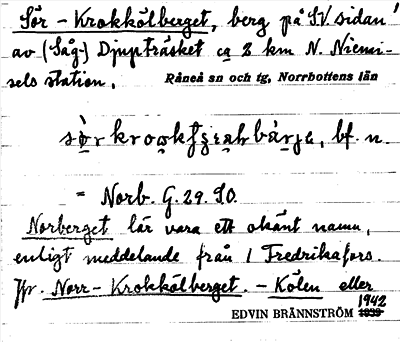 Sör - Krokkölberget, berg på SV sidan
av (Såg-) Djupträsket ca 2 km N. Niemi-
sels station.
Råneå sn och tg, Norrbottens län
bf. n.
= Norb. G. 29. SO.
Norberget lär vara ett okänt namn,
enligt meddelande från 1 Fredrikafors.
Jfr. Norr - Krokkölberget. - Kölen eller
1942
EDVIN BRÄNNSTRÖM 1939